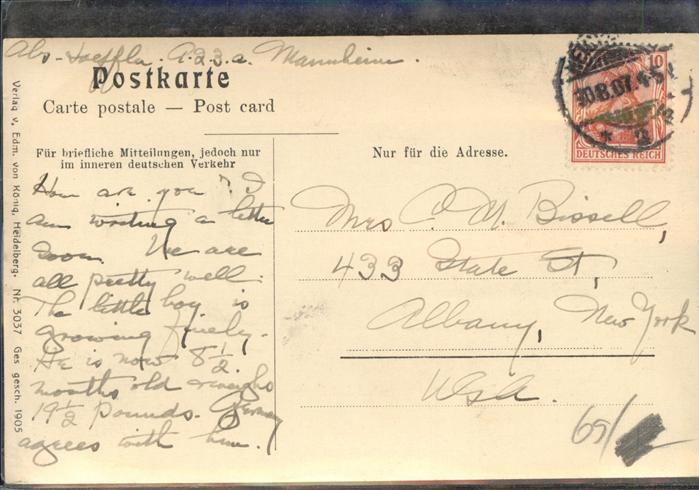 Abs. Hoeffla. A.2.3.a. Mannheim.
Postkarte
Carte postale — Post card
Für briefliche Mitteilungen, jedoch nur
im inneren deutschen Verkehr
Nur für die Adresse.
How are you? I
am writing a letter
soon. We are
all pretty well.
The little boy is
growing finely.
He is now 8 1/2
months old & weighs
19 1/2 pounds. Germany
agrees with him.
Mrs C. M. Bissell,
433 State St,
Albany, New York
USA.
10
30.8.07. 4-5
* 2
DEUTSCHES REICH
65/
Verlag v. Edm. von König, Heidelberg. Nr. 3037 Ges. gesch. 1905